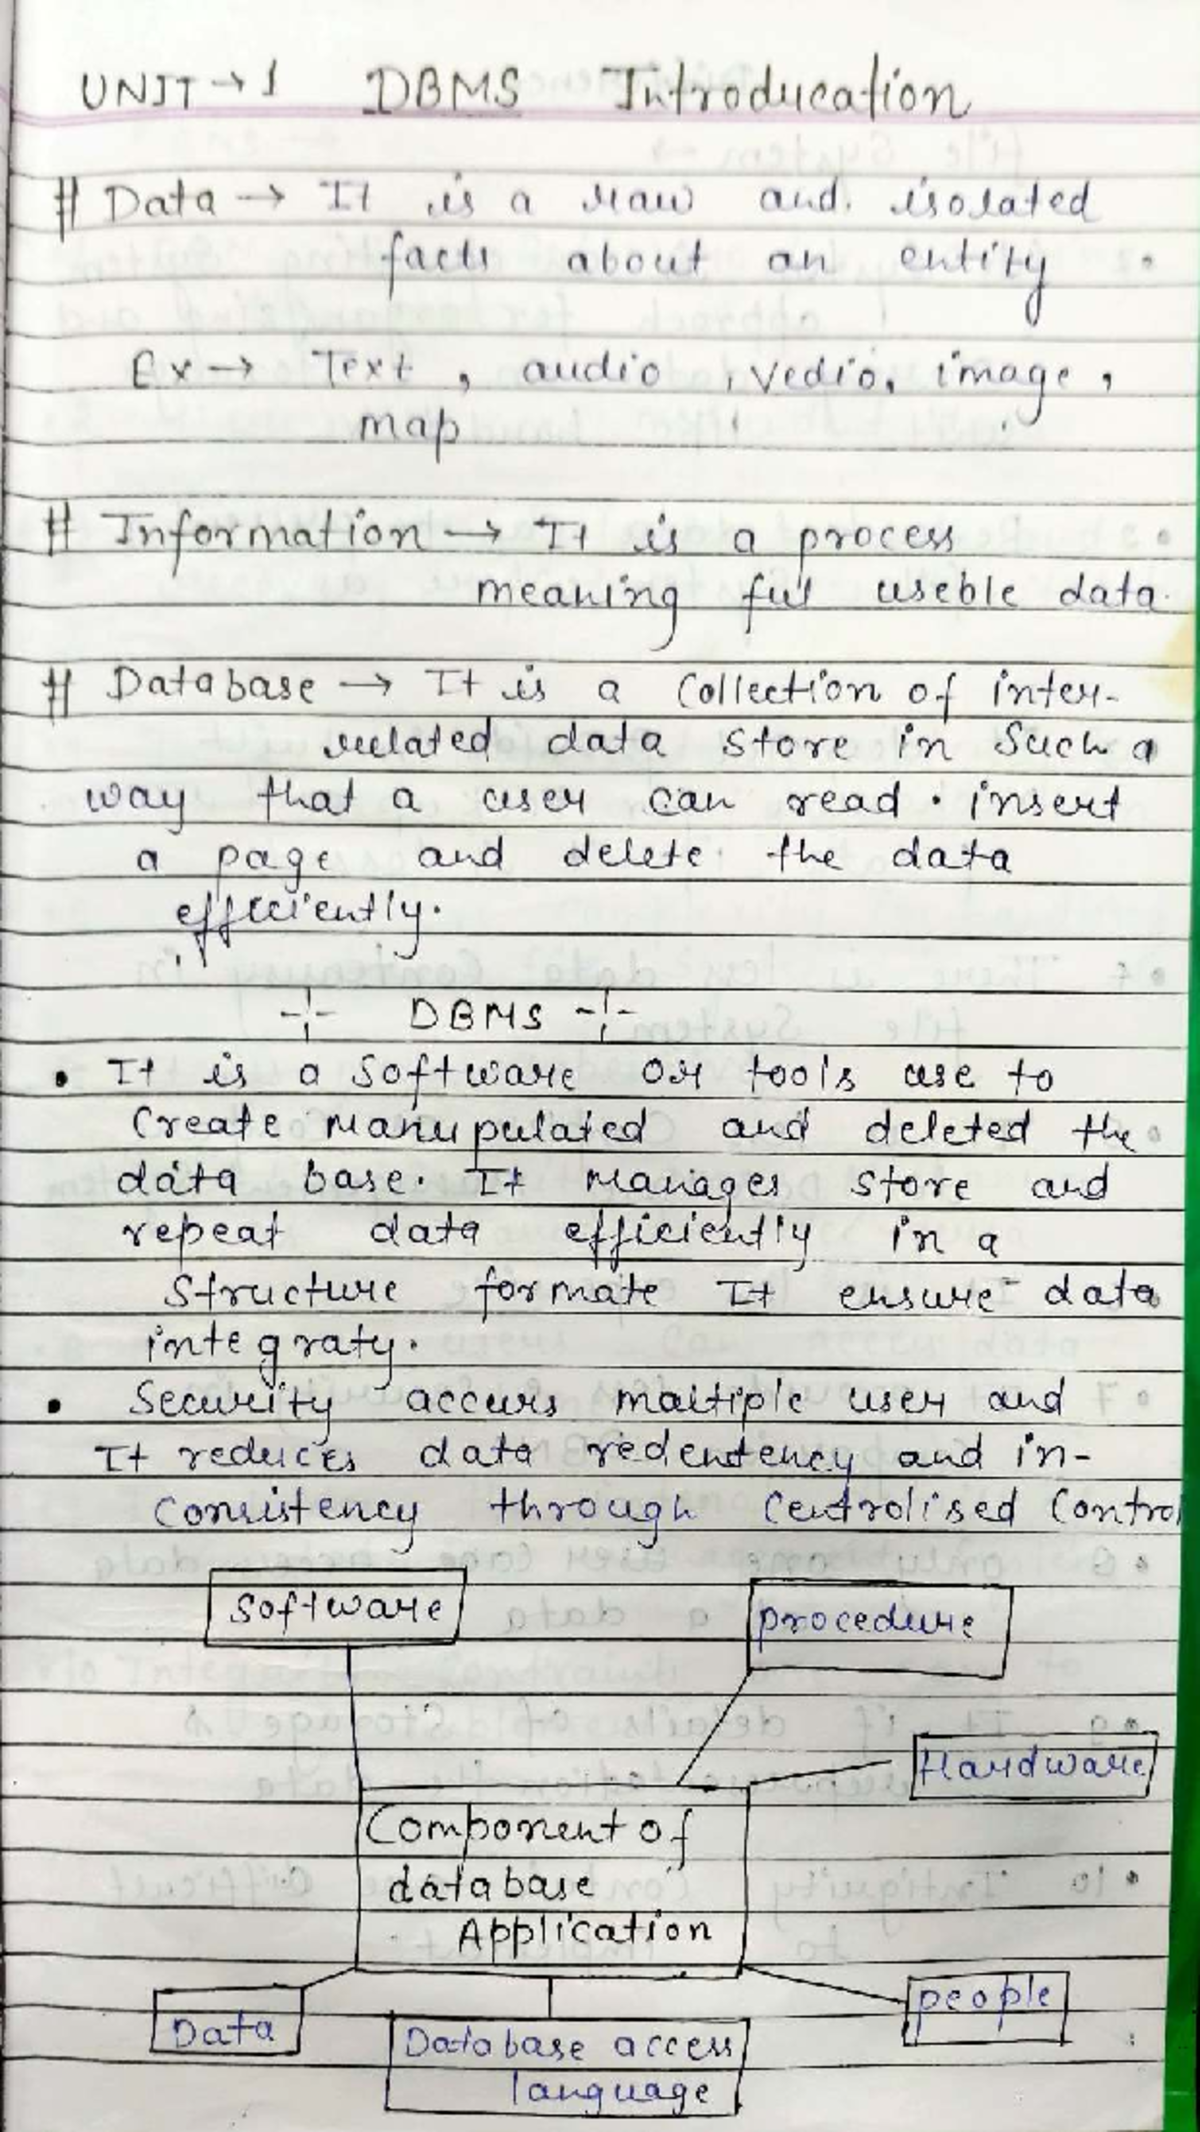 UNIT → 1 DBMS Introducation
# Data → It is a raw and. isolated
facts about an entity
Ex → Text , audio , vedio, image ,
map
# Information → It is a process
meaning ful useble data.
# Database → It is a Collection of inter-
related data store in Such a
way that a user can read . insert
a page and delete the data
efficiently.
-:- DBMS -:-
• It is a Software or tools use to
Create Manupulated and deleted the
data base. It Manages store and
repeat data efficiently in a
Structure formate It ensure data
integraty.
• Security accurs maltiple user and
It reduces data redentency and in-
Consistency through Centrolised Control
Software
procedure
Hardware
Component of
database
Application
Data
Database access
language
people